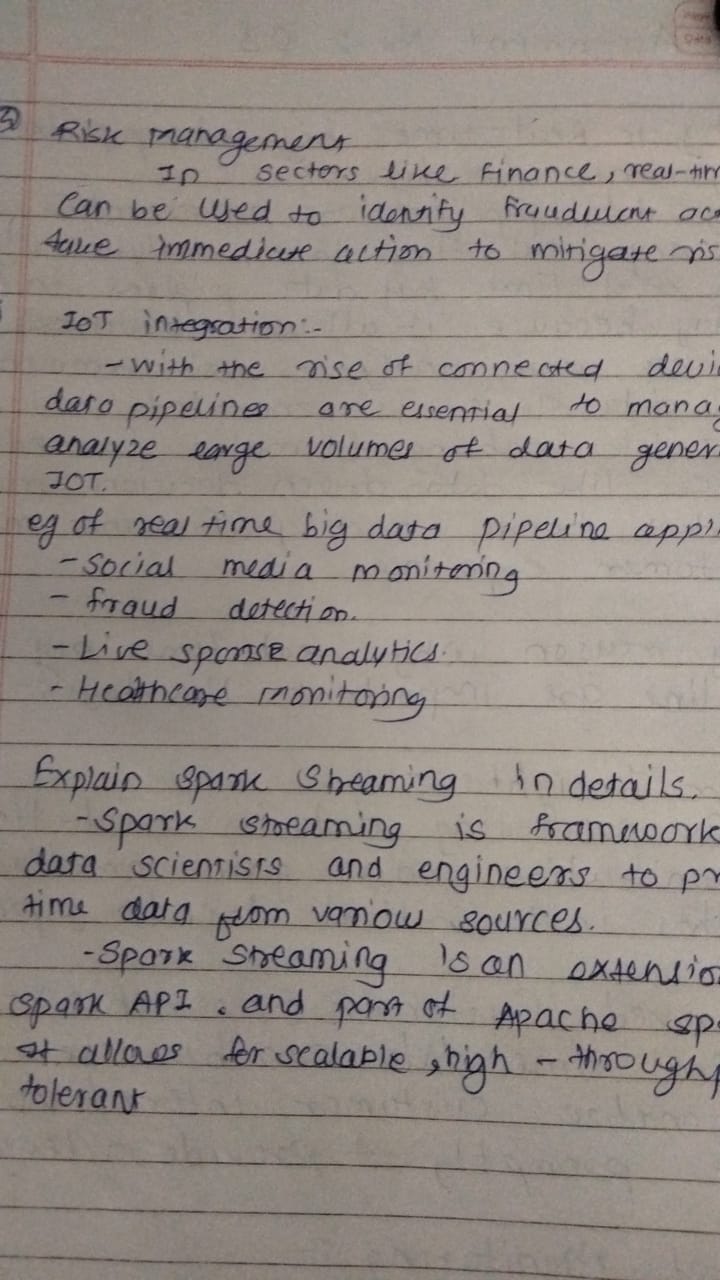 5) Risk management
In sectors like finance, real-tim
can be used to identify fraudulent ac
take immediate action to mitigate ris
IoT integration:-
- With the rise of connected devi
data pipelines are essential to mana
analyze large volumes of data gener
IOT.
eg of real time big data pipeline appli
- Social media monitoring
- fraud detection.
- Live sponse analytics.
- Healthcare monitoring
Explain Spark Streaming in details.
- Spark streaming is framework
data scientists and engineers to pr
time data from various sources.
- Spark Streaming is an extensio
Spark API. and part of Apache sp
It allows for scalable, high - throughp
tolerant